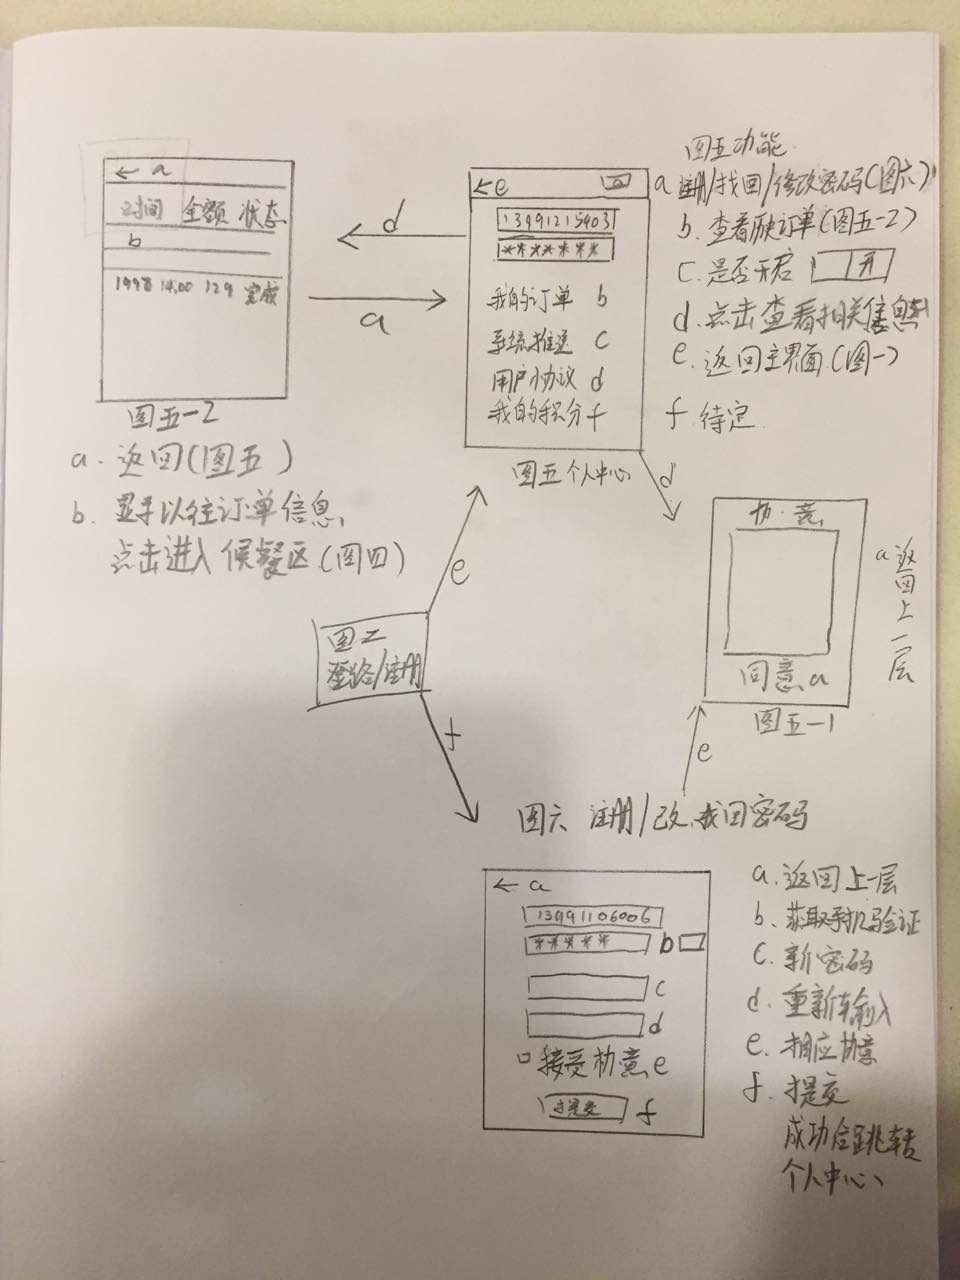 ← a
时间 金额 状态
b
1998 14.00 129 完成
图五-2
a. 返回(图五)
b. 显示以往订单信息
点击进入候餐区(图四)
d
a
← e
13991215403
******
我的订单 b
系统推送 c
用户协议 d
我的积分 f
图五个人中心
图五功能
a 注册/找回/修改密码(图六)
b. 查看历史订单(图五-2)
c. 是否开启 开
d. 点击查看相关信息
e. 返回主界面(图一)
f 待定
d
协意
同意a
图五-1
a返回上一层
e
图二
登路/注册
f
e
图六 注册/改.找回密码
← a
13991106006
***** b
c
d
口接受协意e
提交 f
a. 返回上一层
b. 获取手机验证
c. 新密码
d. 重新输入
e. 相应协意
f. 提交
成功会跳转
个人中心